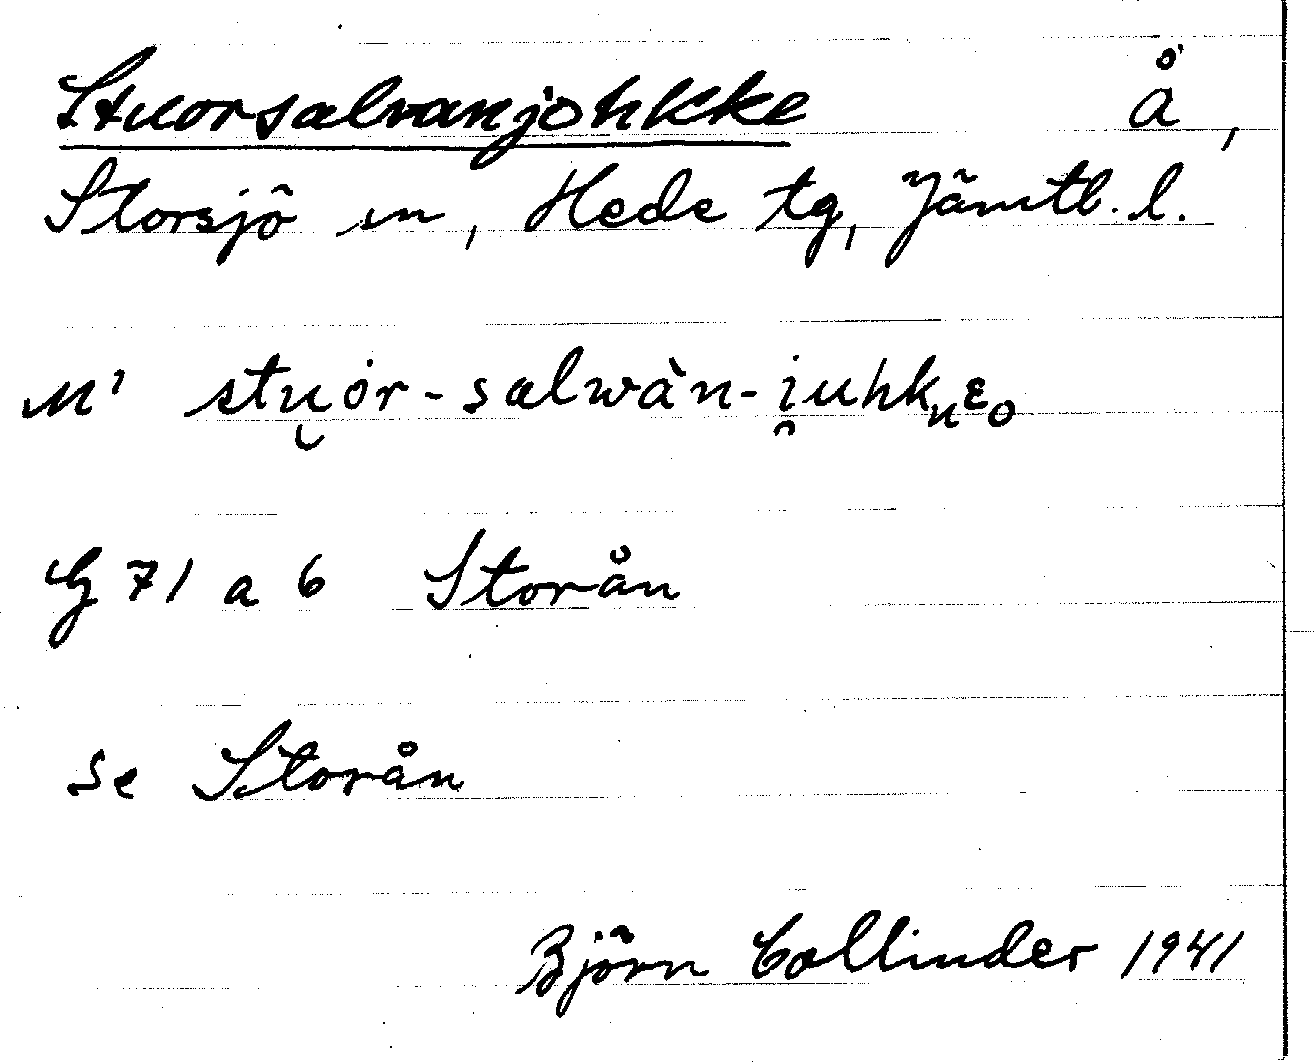 Stuorsalvanjohkke å,
Storsjö sn, Hede tg, Jämtl. l.
M' stu̯òr-salwàn-i̯uhkₙɛₒ
G 71 a 6 Storån
se Storån
Björn Collinder 1941